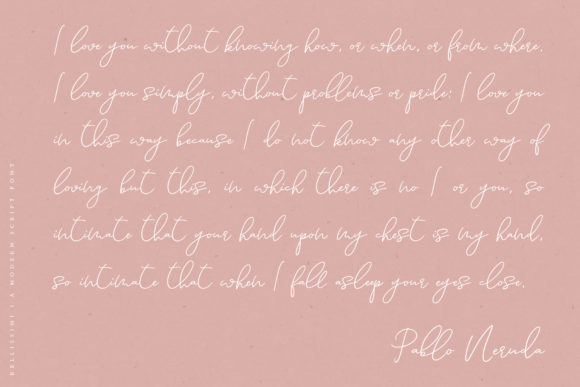 I love you without knowing how, or when, or from where.
I love you simply, without problems or pride: I love you
in this way because I do not know any other way of
loving but this, in which there is no I or you, so
intimate that your hand upon my chest is my hand,
so intimate that when I fall asleep your eyes close.
Pablo Neruda
BELLISSIMI | A MODERN SCRIPT FONT